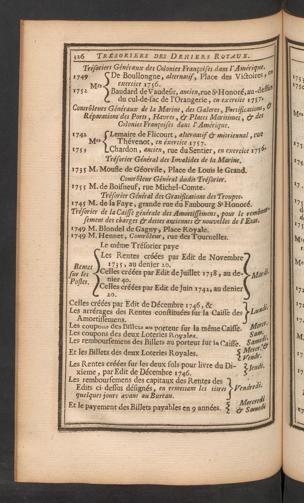 126 TRÉSORIERS DES DENIERS ROYAUX.
Trésoriers Généraux des Colonies Françoises dans l'Amérique.
1749 De Boullongne, alternatif, Place des Victoires, en
exercice 1756.
Mrs
1752 Baudard de Vaudesir, ancien, rue S. Honoré, au-dessus
du cul-de-sac de l'Orangerie, en exercice 1757.
Contrôleurs Généraux de la Marine, des Galeres, Fortifications, &
Réparations des Ports, Havres, & Places Maritimes, & des
Colonies Françoises dans l'Amérique.
1742 Lemaire de Flicourt, alternatif & mitriennal, rue
Mrs Thévenot, en exercice 1757.
1753 Chardon, ancien, rue du Sentier, en exercice 1756.
Trésorier Général des Invalides de la Marine.
1735 M. Mousle de Géorvile, Place de Louis le Grand.
Contrôleur Général dudit Trésorier.
1751 M. de Boisneuf, rue Michel-Comte.
Trésorier Général des Gratifications des Troupes.
1745 M. de la Faye, grande rue du Faubourg S. Honoré.
Trésorier de la Caisse générale des Amortissemens, pour le rembour-
sement des charges & dettes anciennes & nouvelles de l'Etat.
1749 M. Blondel de Gagny, Place Royale.
1749 M. Hennet, Contrôleur, rue des Tournelles.
Le même Trésorier paye
Les Rentes créées par Edit de Novembre
1735, au denier 20.
Rentes sur les Postes. Celles créées par Edit de Juillet 1738, au de-
nier 40. Mardi.
Celles créées par Edit de Juin 1742, au denier
20.
Celles créées par Edit de Décembre 1746, &
Les arrérages des Rentes constituées sur la Caisse des
Amortissemens. Lundi.
Les coupons des Billets au porteur sur la même Caisse. Mercr.
Les coupons des deux Loteries Royales. Sam.
Les remboursemens des Billets au porteur sur la Caisse. Samedi.
Et les Billets des deux Loteries Royales. Mercr. &
Vendr.
Les Rentes créées sur les deux sols pour livre du Di-
xième, par Edit de Décembre 1746. Jeudi.
Les remboursemens des capitaux des Rentes des
Edits ci-dessus désignés, en remettant les titres
quelques jours avant au Bureau. Vendredi.
Et le payement des Billets payables en 9 années. Mercredi
& Samedi